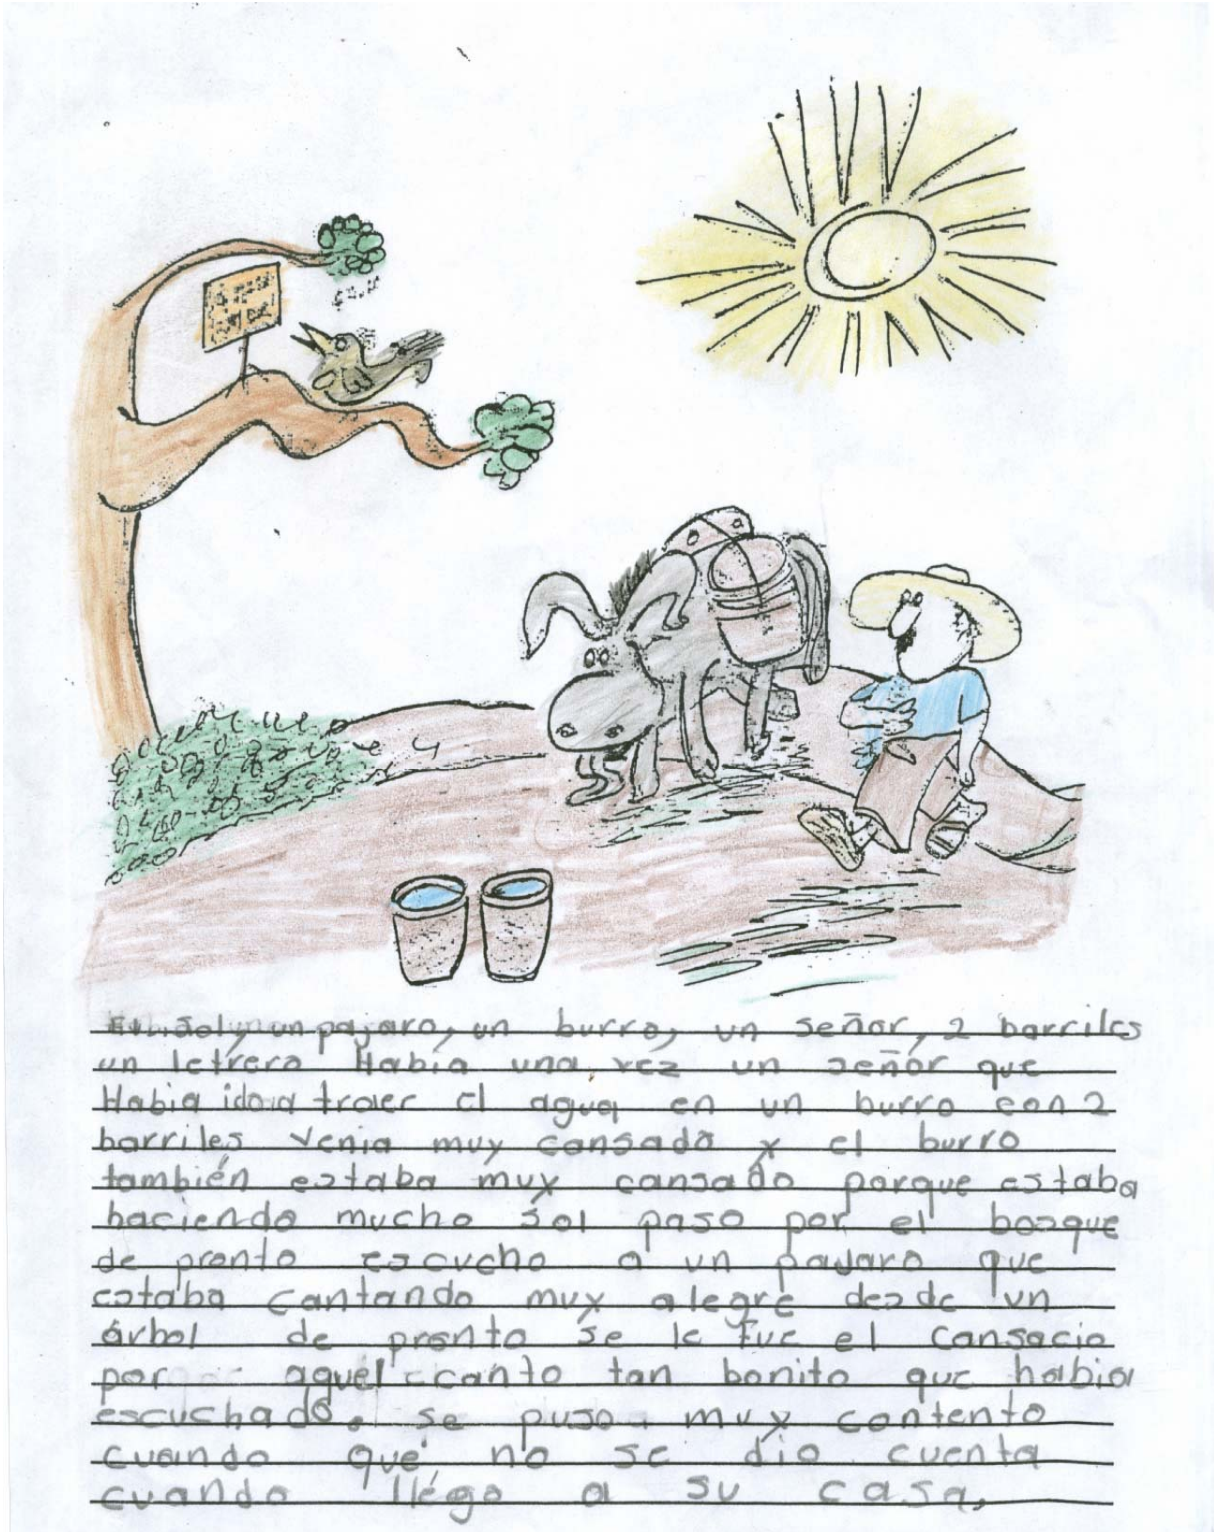 sol, un pajaro, un burro, un señor, 2 barriles
un letrero Habia una vez un señor que
Habia ido a traer el agua en un burro con 2
barriles venia muy cansado y el burro
también estaba muy cansado porque estaba
haciendo mucho sol paso por el bosque
de pronto escucho a un pajaro que
estaba cantando muy alegre desde un
árbol de pronto se le fue el cansacio
por aquel canto tan bonito que habia
escuchado. se puso muy contento
cuando que no se dio cuenta
cuando llégo a su casa.